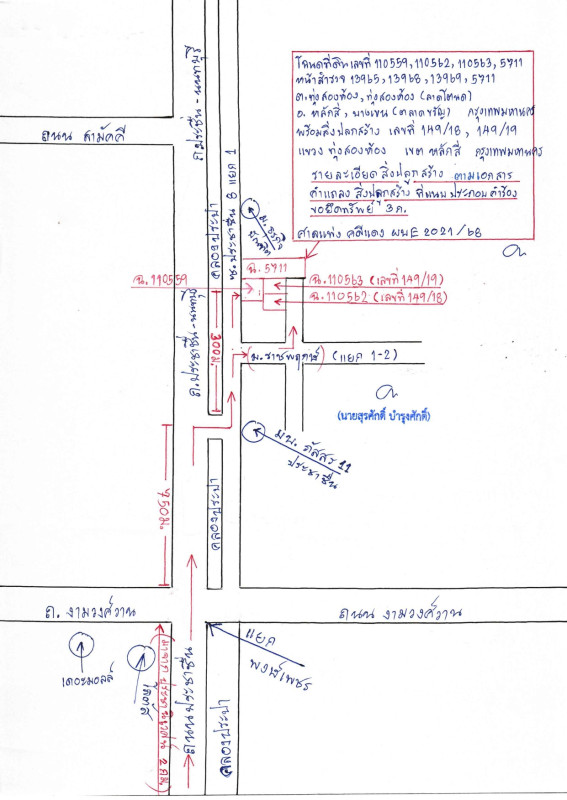 โฉนดที่ดินเลขที่ 110559, 110562, 110563, 5711
หน้าสำรวจ 13965, 13968, 13969, 5711
ต.ทุ่งสองห้อง, ทุ่งสองห้อง (ลาดโตนด)
อ. หลักสี่, บางเขน (ตลาดขวัญ) กรุงเทพมหานคร
พร้อมสิ่งปลูกสร้าง เลขที่ 149/18, 149/19
แขวง ทุ่งสองห้อง เขต หลักสี่ กรุงเทพมหานคร
รายละเอียดสิ่งปลูกสร้าง ตามเอกสาร
คำแถลง สิ่งปลูกสร้าง ที่แนบประกอบคำร้อง
ขอยึดทรัพย์ 3 ค.
ศาลแพ่ง คดีแดง ผบE 2021/68
ถ.ประชาชื่น - นนทบุรี
ถนน สามัคคี
คลองประปา
ซ.ประชาชื่น 8 แยก 1
ม. ธุรกิจ
บัณฑิต
ฉ. 5711
ฉ. 110559
ฉ. 110563 (เลขที่ 149/19)
ฉ. 110562 (เลขที่ 149/18)
300ม.
(ม.ราชพฤกษ์) (แยก 1-2)
(นายสุรศักดิ์ บำรุงศักดิ์)
มบ. ภัสสร 11
ประชาชื่น
750ม.
คลองประปา
ถ. งามวงศ์วาน
ถนน งามวงศ์วาน
แยก
พงษ์เพชร
เดอะมอลล์
โลตัส
ถนนประชาชื่น
คลองประปา